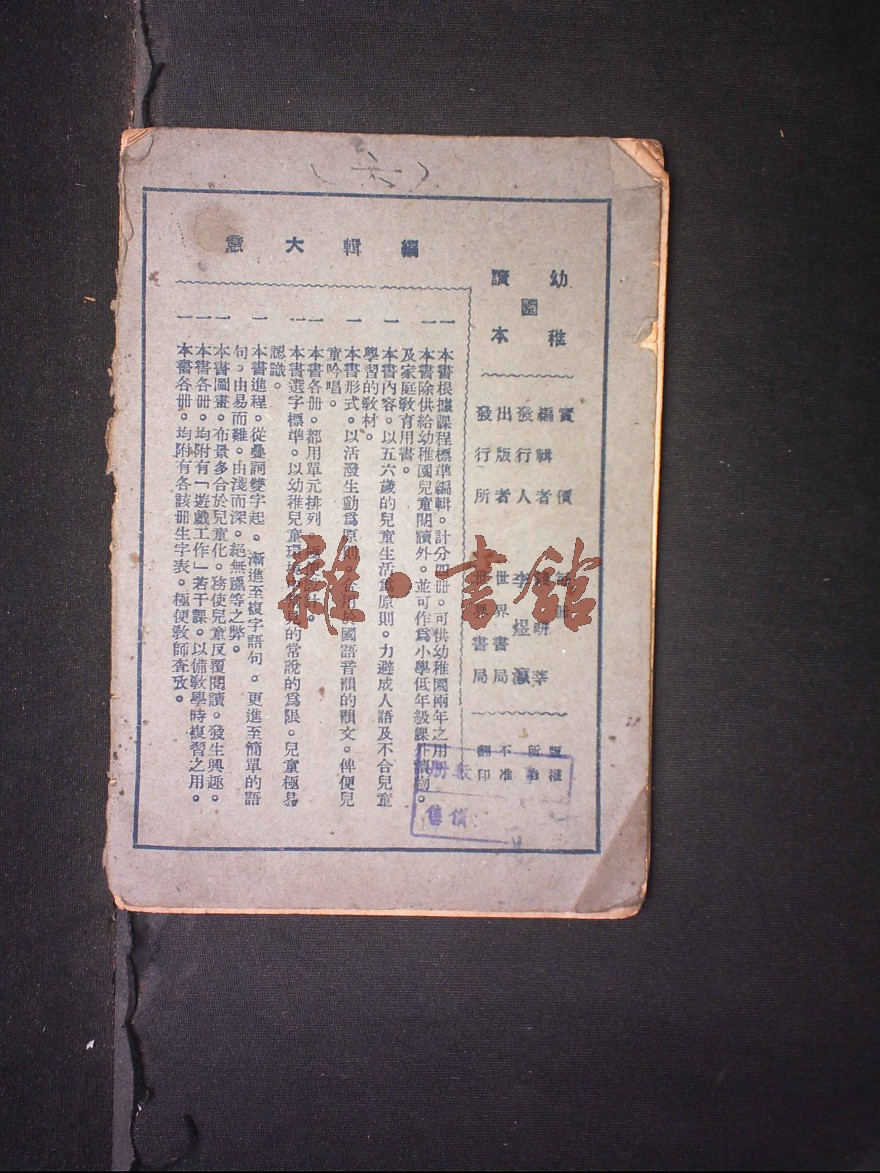 (六)
幼稚園讀本
實價
編輯者
發行人 李煜瀛
出版者 世界書局
發行所 世界書局
版權所有
不准翻印
編輯大意
一 本書根據課程標準編輯。計分四册。可供幼稚園兩年之用。
一 本書除供給幼稚園兒童閱讀外。並可作爲小學低年級課外讀物。
及家庭教育用書。
一 本書內容。以五六歲的兒童生活爲原則。力避成人語及不合兒童
學習的教材。
一 本書形式。以活發生動爲原則。多用於國語音韻的韻文。俾便兒
童吟唱。
一 本書各册。都用單元排列。
一 本書選字標準。以幼稚兒童環境中常見的常說的爲限。兒童極易
認識。
一 本書進程。從疊詞雙字起。漸進至複字語句。更進至簡單的語
句。由易而難。由淺而深。絕無躐等之弊。
一 本書圖畫。布景多合於兒童化。務使兒童反覆閱讀。發生興趣。
一 本書各册。均附有「遊戲工作」若干課。以備教學時複習之用。
一 本書各册。均附有各該册生字表。極便教師查攷。
册數
售價
雜·書館